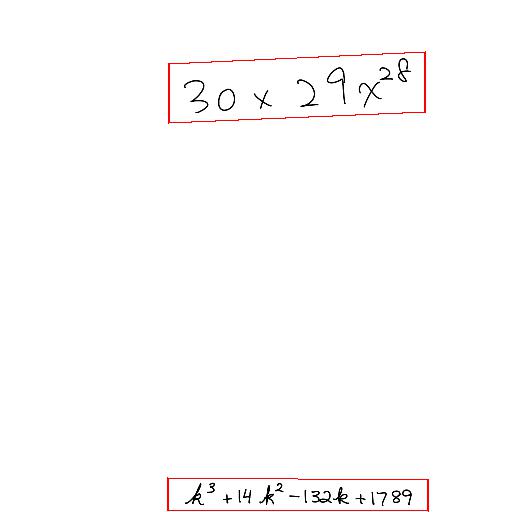 30 × 29x^{28}
k^3 + 14k^2 - 132k + 1789